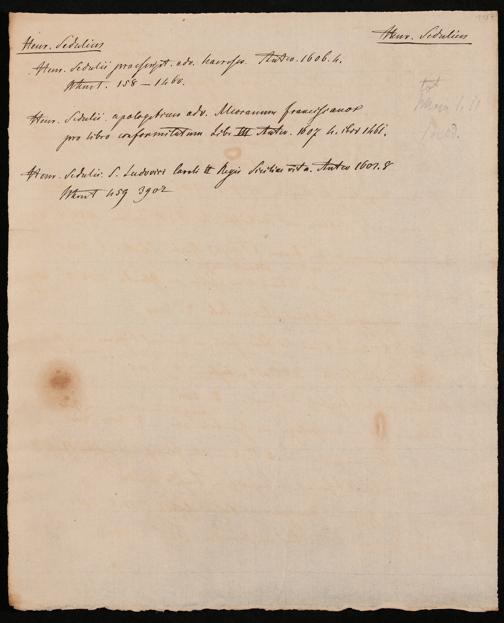 Henr. Sedulius
Henr. Sedulius
Henr. Sedulii praescript. adv. haereses. Antv. 1606. 4.
158 – 1460.
Henr. Sedulii apologeticus adv. Alcoranum franciscanor
pro libro conformitatum Lib. III Antv. 1607 4. 1461.
Henr. Sedulii. S. Ludovici Caroli II Regis Siciliae vita. Antv 1602. 8
459 3902